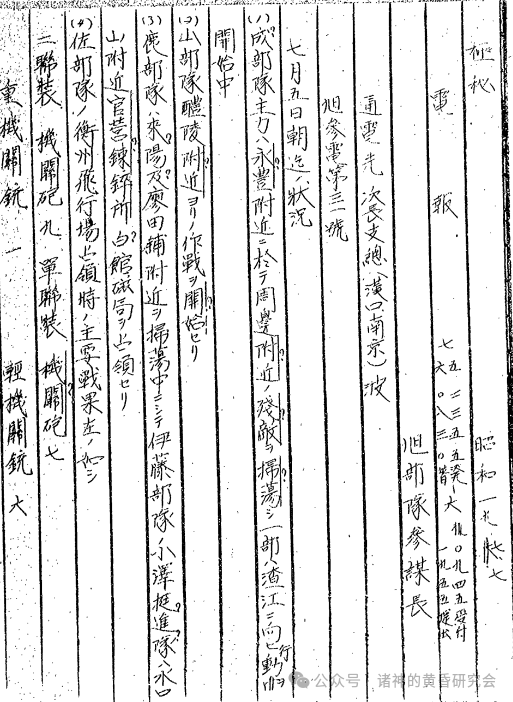 極秘
電報 昭和一九
七、五 二三五五発
七、六 〇八三〇着
一九五五提出
旭部隊參謀長
通電先 次長、支總(漢口南京)、波
旭參電第三一號
七月五日朝迄ノ狀況
(1)成部隊主力ハ永豊附近ニ於テ周邊附近ノ殘敵ヲ掃蕩シ一部ハ渣江ニ向ヒ行動ヲ
開始中
(2)山部隊醴陵附近ヨリノ作戰ヲ開始セリ
(3)俵部隊ハ來陽及廖田鋪附近ヲ掃蕩中ニシテ伊藤部隊ノ小澤挺進隊ハ水口
山附近官营鍊鋅所、白館磁筒ヲ占領セリ
(4)佐部隊ノ衡州飛行場占領時ノ主要戰果左ノ如シ
二聯裝機關砲九、單聯裝機關砲七
重機關銃一 輕機關銃六
公众号 诸神的黄昏研究会